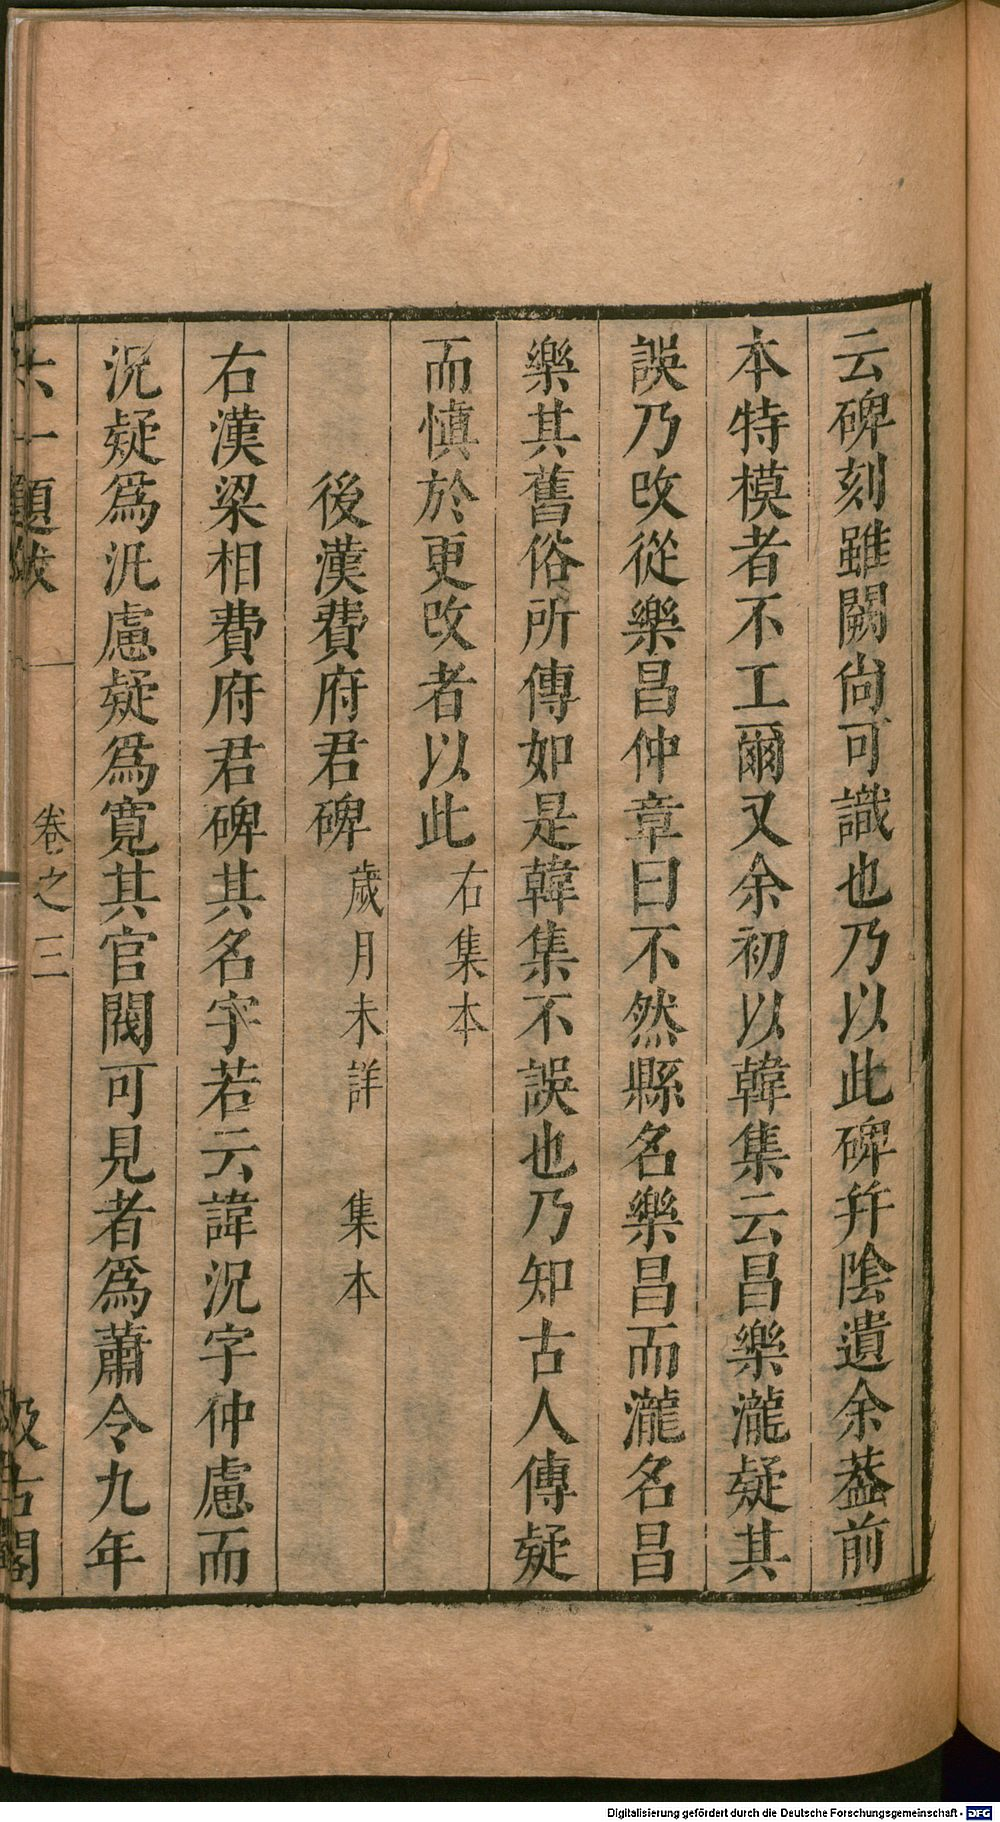 云碑刻雖闕尙可識也乃以此碑幷陰遺余葢前
本特模者不工爾又余初以韓集云昌樂瀧疑其
誤乃改從樂昌仲章曰不然縣名樂昌而瀧名昌
樂其舊俗所傳如是韓集不誤也乃知古人傳疑
而慎於更改者以此右集本
後漢費府君碑歲月未詳 集本
右漢梁相費府君碑其名字若云諱況字仲慮而
況疑爲汎慮疑爲寬其官閥可見者爲蕭令九年
六一題跋 卷之三 汲古閣
Digitalisierung gefördert durch die Deutsche Forschungsgemeinschaft - DFG